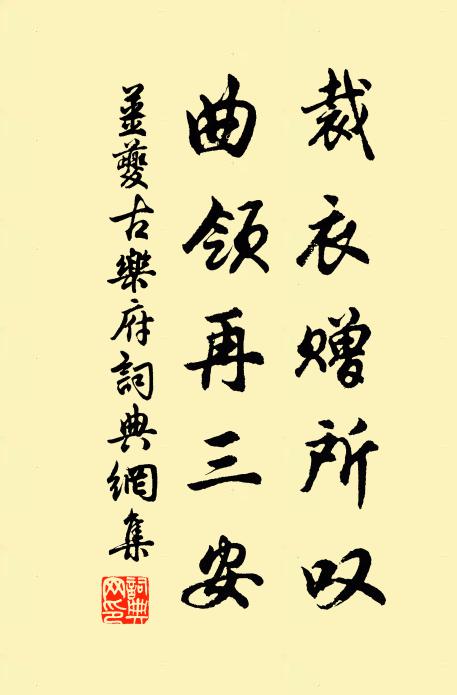 裁衣赠所叹
曲领再三安
姜夔古樂府詞典網集
詞典网印